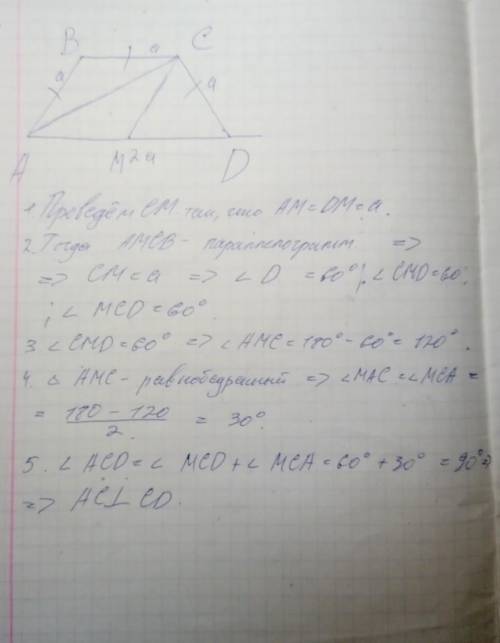 B a C
a a
A M 2a D
1. Проведём CM так, что AM = DM = a.
2. Тогда AMCB - параллелограмм =>
=> CM = a => ∠D = 60°; ∠CMD = 60°
; ∠MCD = 60°.
3. ∠CMD = 60° => ∠AMC = 180° - 60° = 120°.
4. △ AMC - равнобедренный => ∠MAC = ∠MCA =
= (180 - 120)/2 = 30°.
5. ∠ACD = ∠MCD + ∠MCA = 60° + 30° = 90° =>
=> AC ⊥ CD.